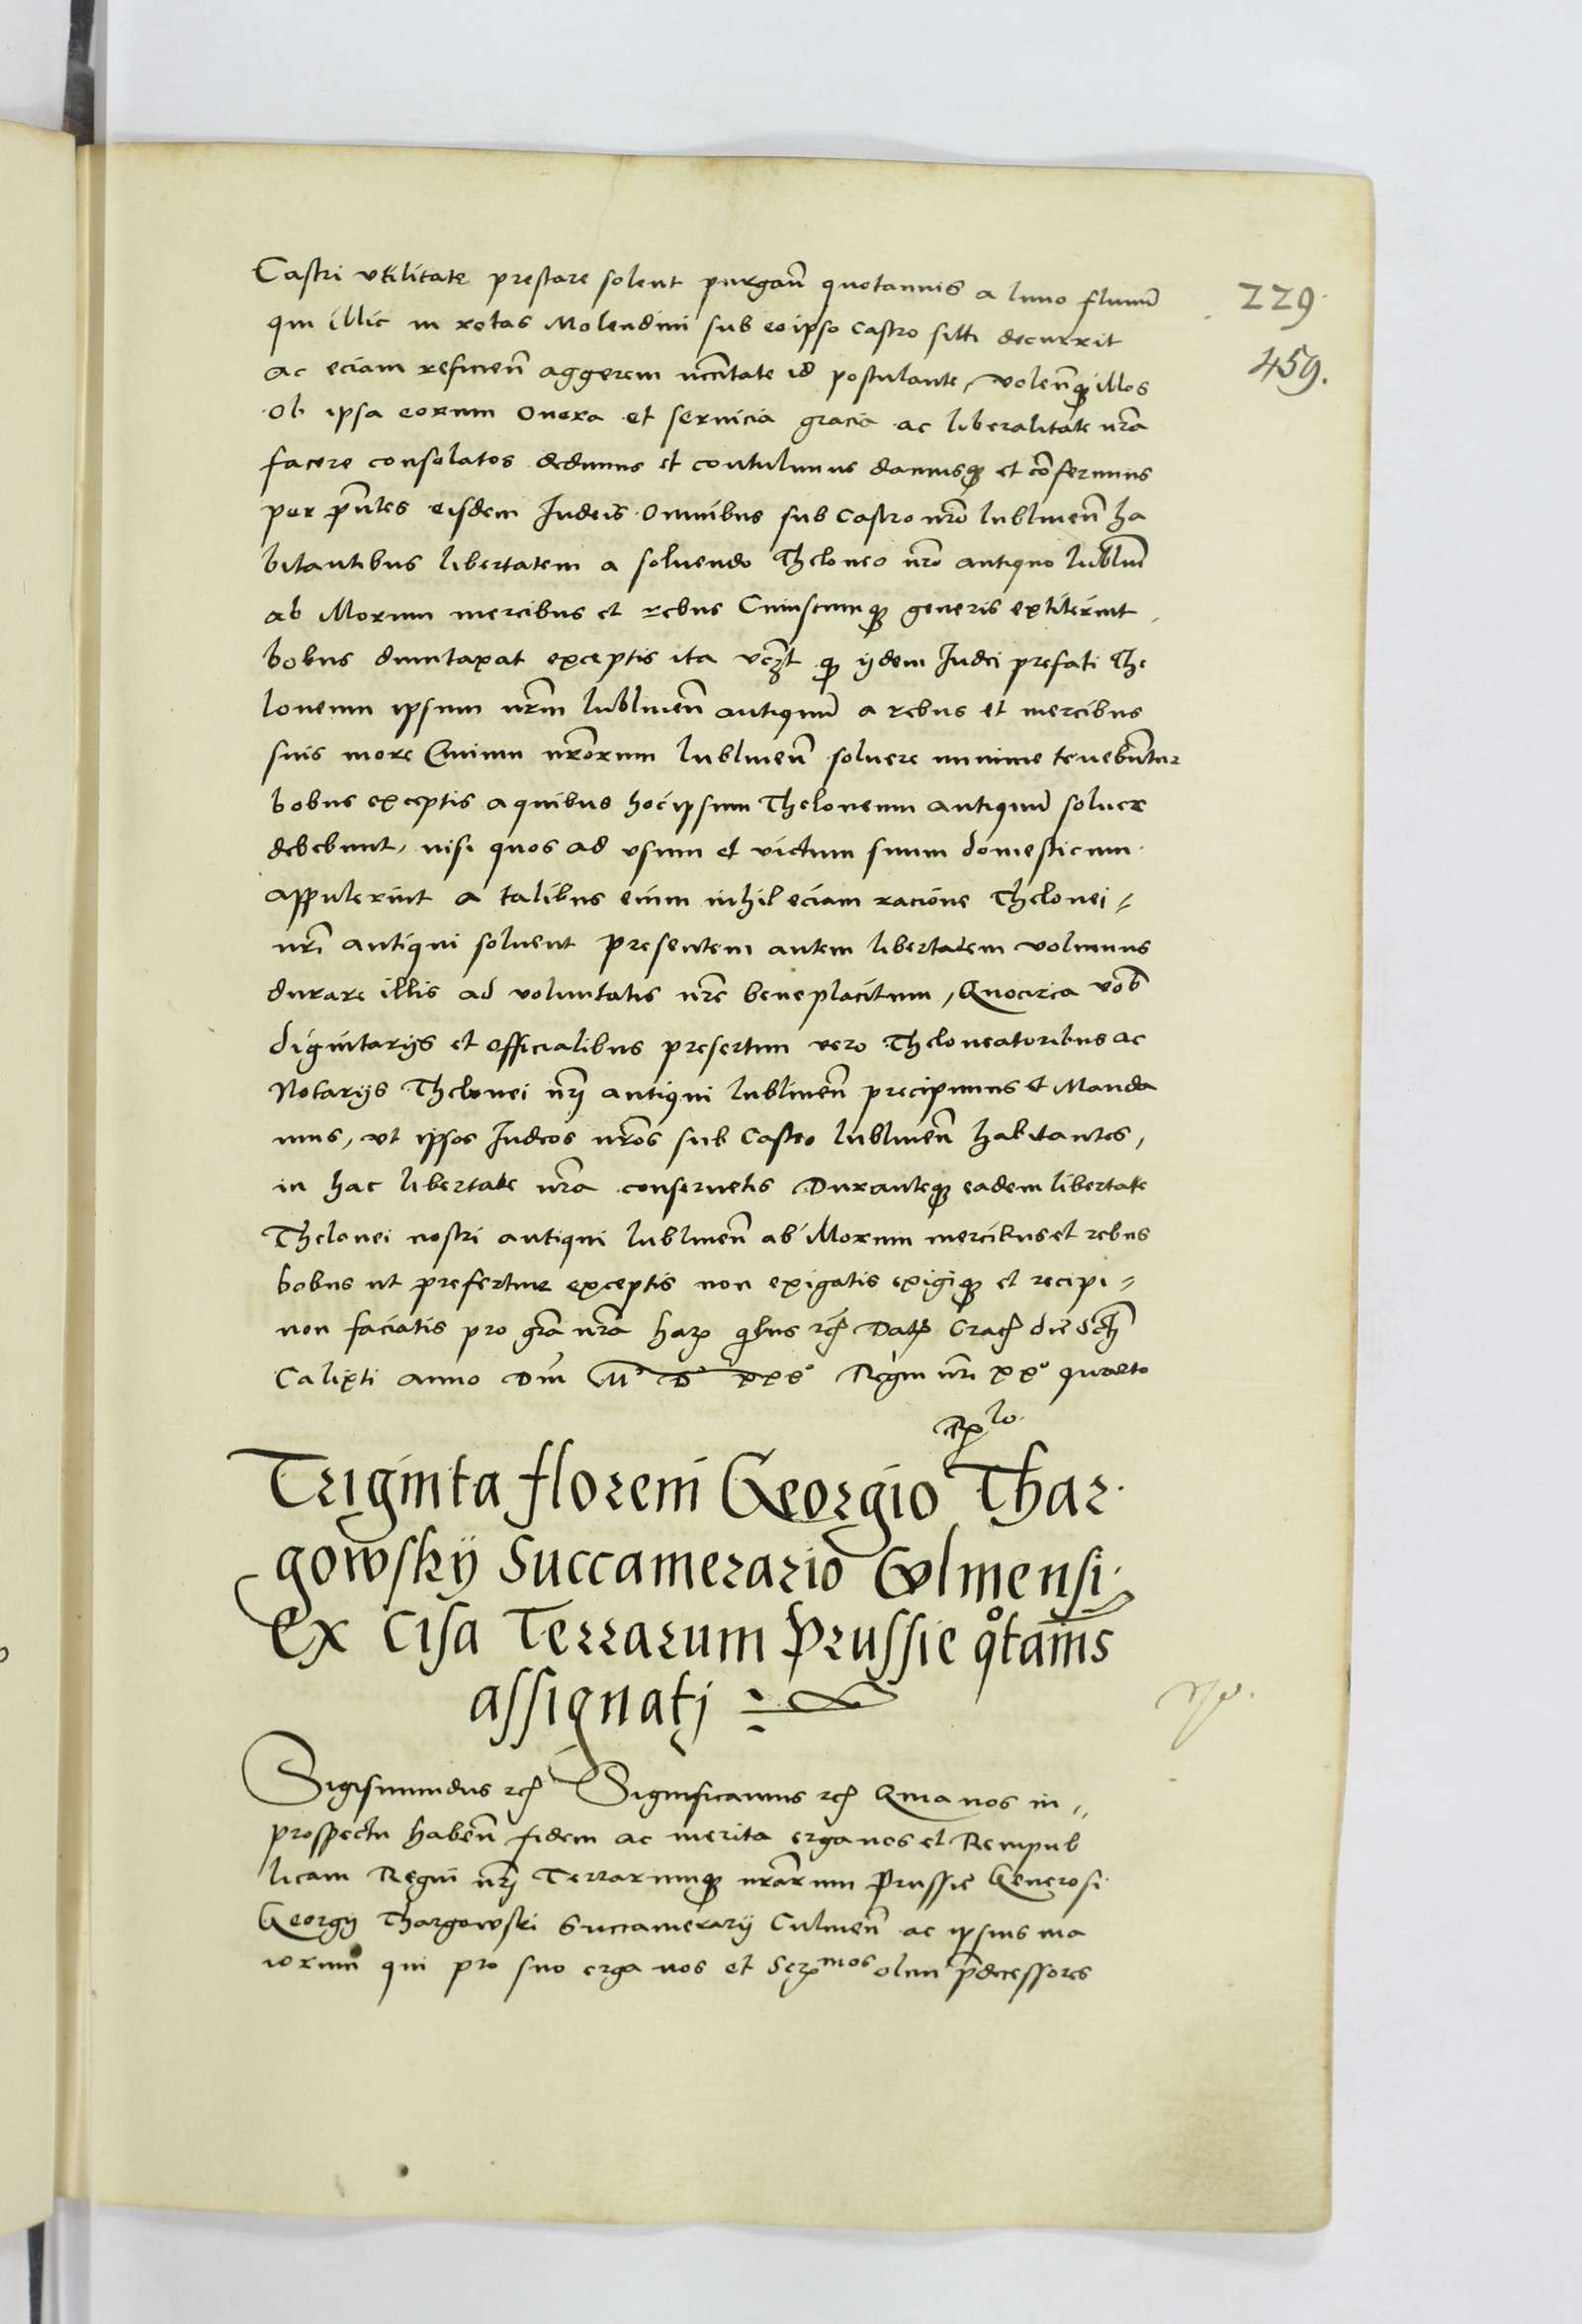 Castri vtilitate prestare solent purgan̄ quotannis a limo fluuiū
229.
qui illic in rotas Molendini sub eo ipso Castro sitti decurrit
ac eciam reficien̄ aggerem nccitate id postulante, volen̄q illos
459.
Ob ipsa eorum Onera et seruicia gracia ac liberalitate nr̄a
facere consolatos dedimus et contulimus damusq et cōferimus
per p̄ntes eisdem Iudeis Omnibus sub Castro nr̄o lublinen̄ ha
bitantibus libertatem a soluendo Theloneo nr̄o antiquo lublin̄
ab illorum mercibus et rebus Cuiuscumq generis extiterint,
bobus dumtaxat exceptis ita vcz̄t q iydem Iudei prefati The
loneum ipsum nr̄m lublinen̄ antiquū a rebus et mercibus
suis more Ciuium nr̄orum lublinen̄ soluere minime tenebūtur
bobus exceptis a quibus hoc ipsum Theloneum antiquū soluere
debebunt, nisi quos ad vsum et victum suum domesticum
appulerint a talibus enim nihil eciam racione Thelonei
nr̄i antiqui soluent presentem autem libertatem volumus
durare illis ad voluntatis nr̄e beneplacitum, Quocirca vob̄
dignitarijs et officialibus presertim vero Theloneatoribus ac
Notarijs Thelonei nr̄j antiqui lublinen̄ precipimus et Manda
mus, vt ipsos Iudeos nr̄os sub Castro lublinen̄ habitantes,
in hac libertate nr̄a conseruetis Duranteq eadem libertate
Thelonei nostri antiqui lublinen̄ ab illorum mercibus et rebus
bobus ut prefertur exceptis non exigatis exigiq et recipi
non faciatis pro gr̄a nr̄a har q̄bus rc̄ Dat Crac die Sc̄ti
Calixti anno Dn̄i M° D° xxx° Regni nr̄i xx° quarto
Triginta floreni Georgio Thar
gowskij Succamerario Culmensi
Ex Cisa Terrarum Prussie q°tan̄is
assignatj
Sigismundus rc̄ Significamus rc̄ Quia nos in
prospectu haben̄ fidem ac merita erga nos et Rempub
licam Regni nr̄j Terrarumq nr̄arum Prussie Generosi
Georgij Thargowski Succamerarij Culmen̄ ac ipsius ma
iorum qui pro suo erga nos et Ser mos olim p̄decessores